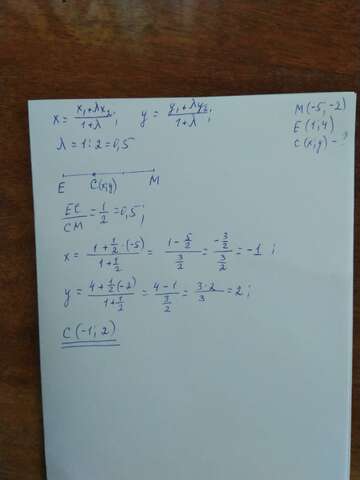 x = (x₁+λx₂)/(1+λ); y = (y₁+λy₂)/(1+λ);
M(-5,-2)
E(1,4)
C(x;y) - ?
λ = 1:2 = 0,5
E C(x;y) M
EC/CM = 1/2 = 0,5;
x = (1+1/2·(-5))/(1+1/2) = (1-5/2)/(3/2) = (-3/2)/(3/2) = -1;
y = (4+1/2(-2))/(1+1/2) = (4-1)/(3/2) = (3·2)/3 = 2;
C(-1; 2)